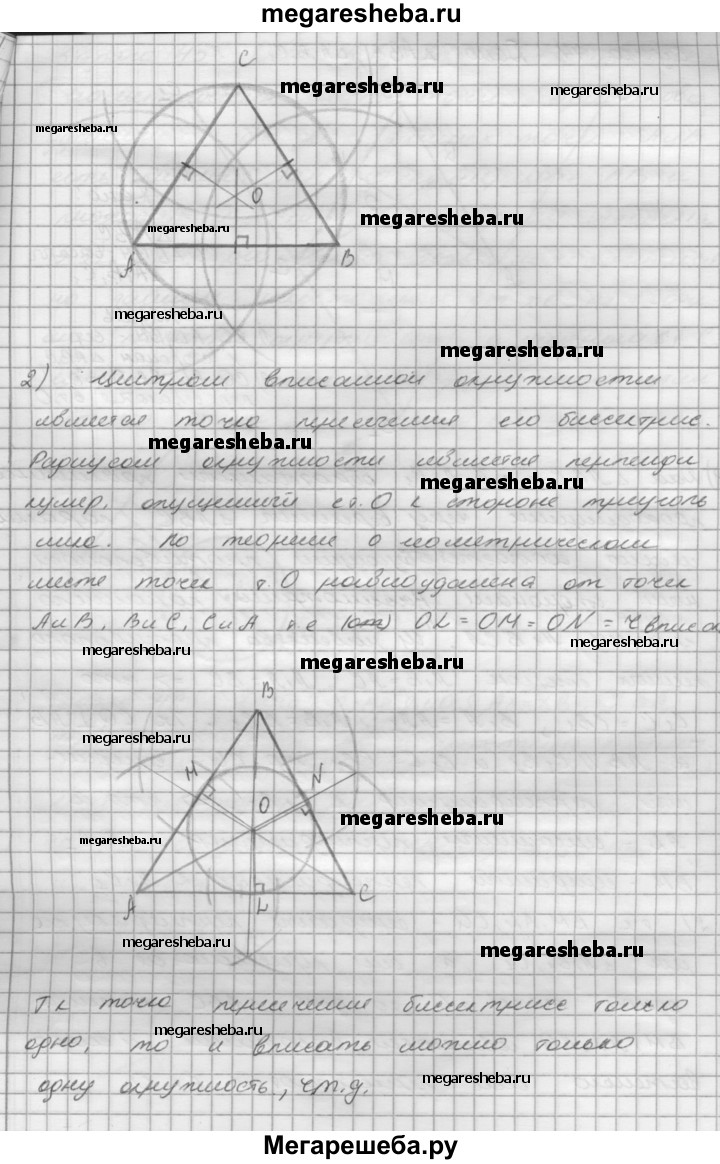 megaresheba.ru
C
megaresheba.ru
megaresheba.ru
megaresheba.ru
O
megaresheba.ru
megaresheba.ru
A
B
megaresheba.ru
megaresheba.ru
2) Центром вписанной окружности
является точка пересечения его биссектрис.
megaresheba.ru
Радиусом окружности является перпенди
megaresheba.ru
куляр, опущенный с т. O к стороне треуголь
ника. По теореме о геометрическом
месте точек т. O равноудалена от точек
A и B, B и C, C и A т.е OL = OM = ON = r впис
megaresheba.ru
megaresheba.ru
megaresheba.ru
B
megaresheba.ru
M
N
O
megaresheba.ru
megaresheba.ru
A
L
C
megaresheba.ru
megaresheba.ru
Т к точка пересечения биссектрисс только
megaresheba.ru
одна, то и вписать можно только
megaresheba.ru
одну окружность, ч.т.д.
Мегарешеба.ру